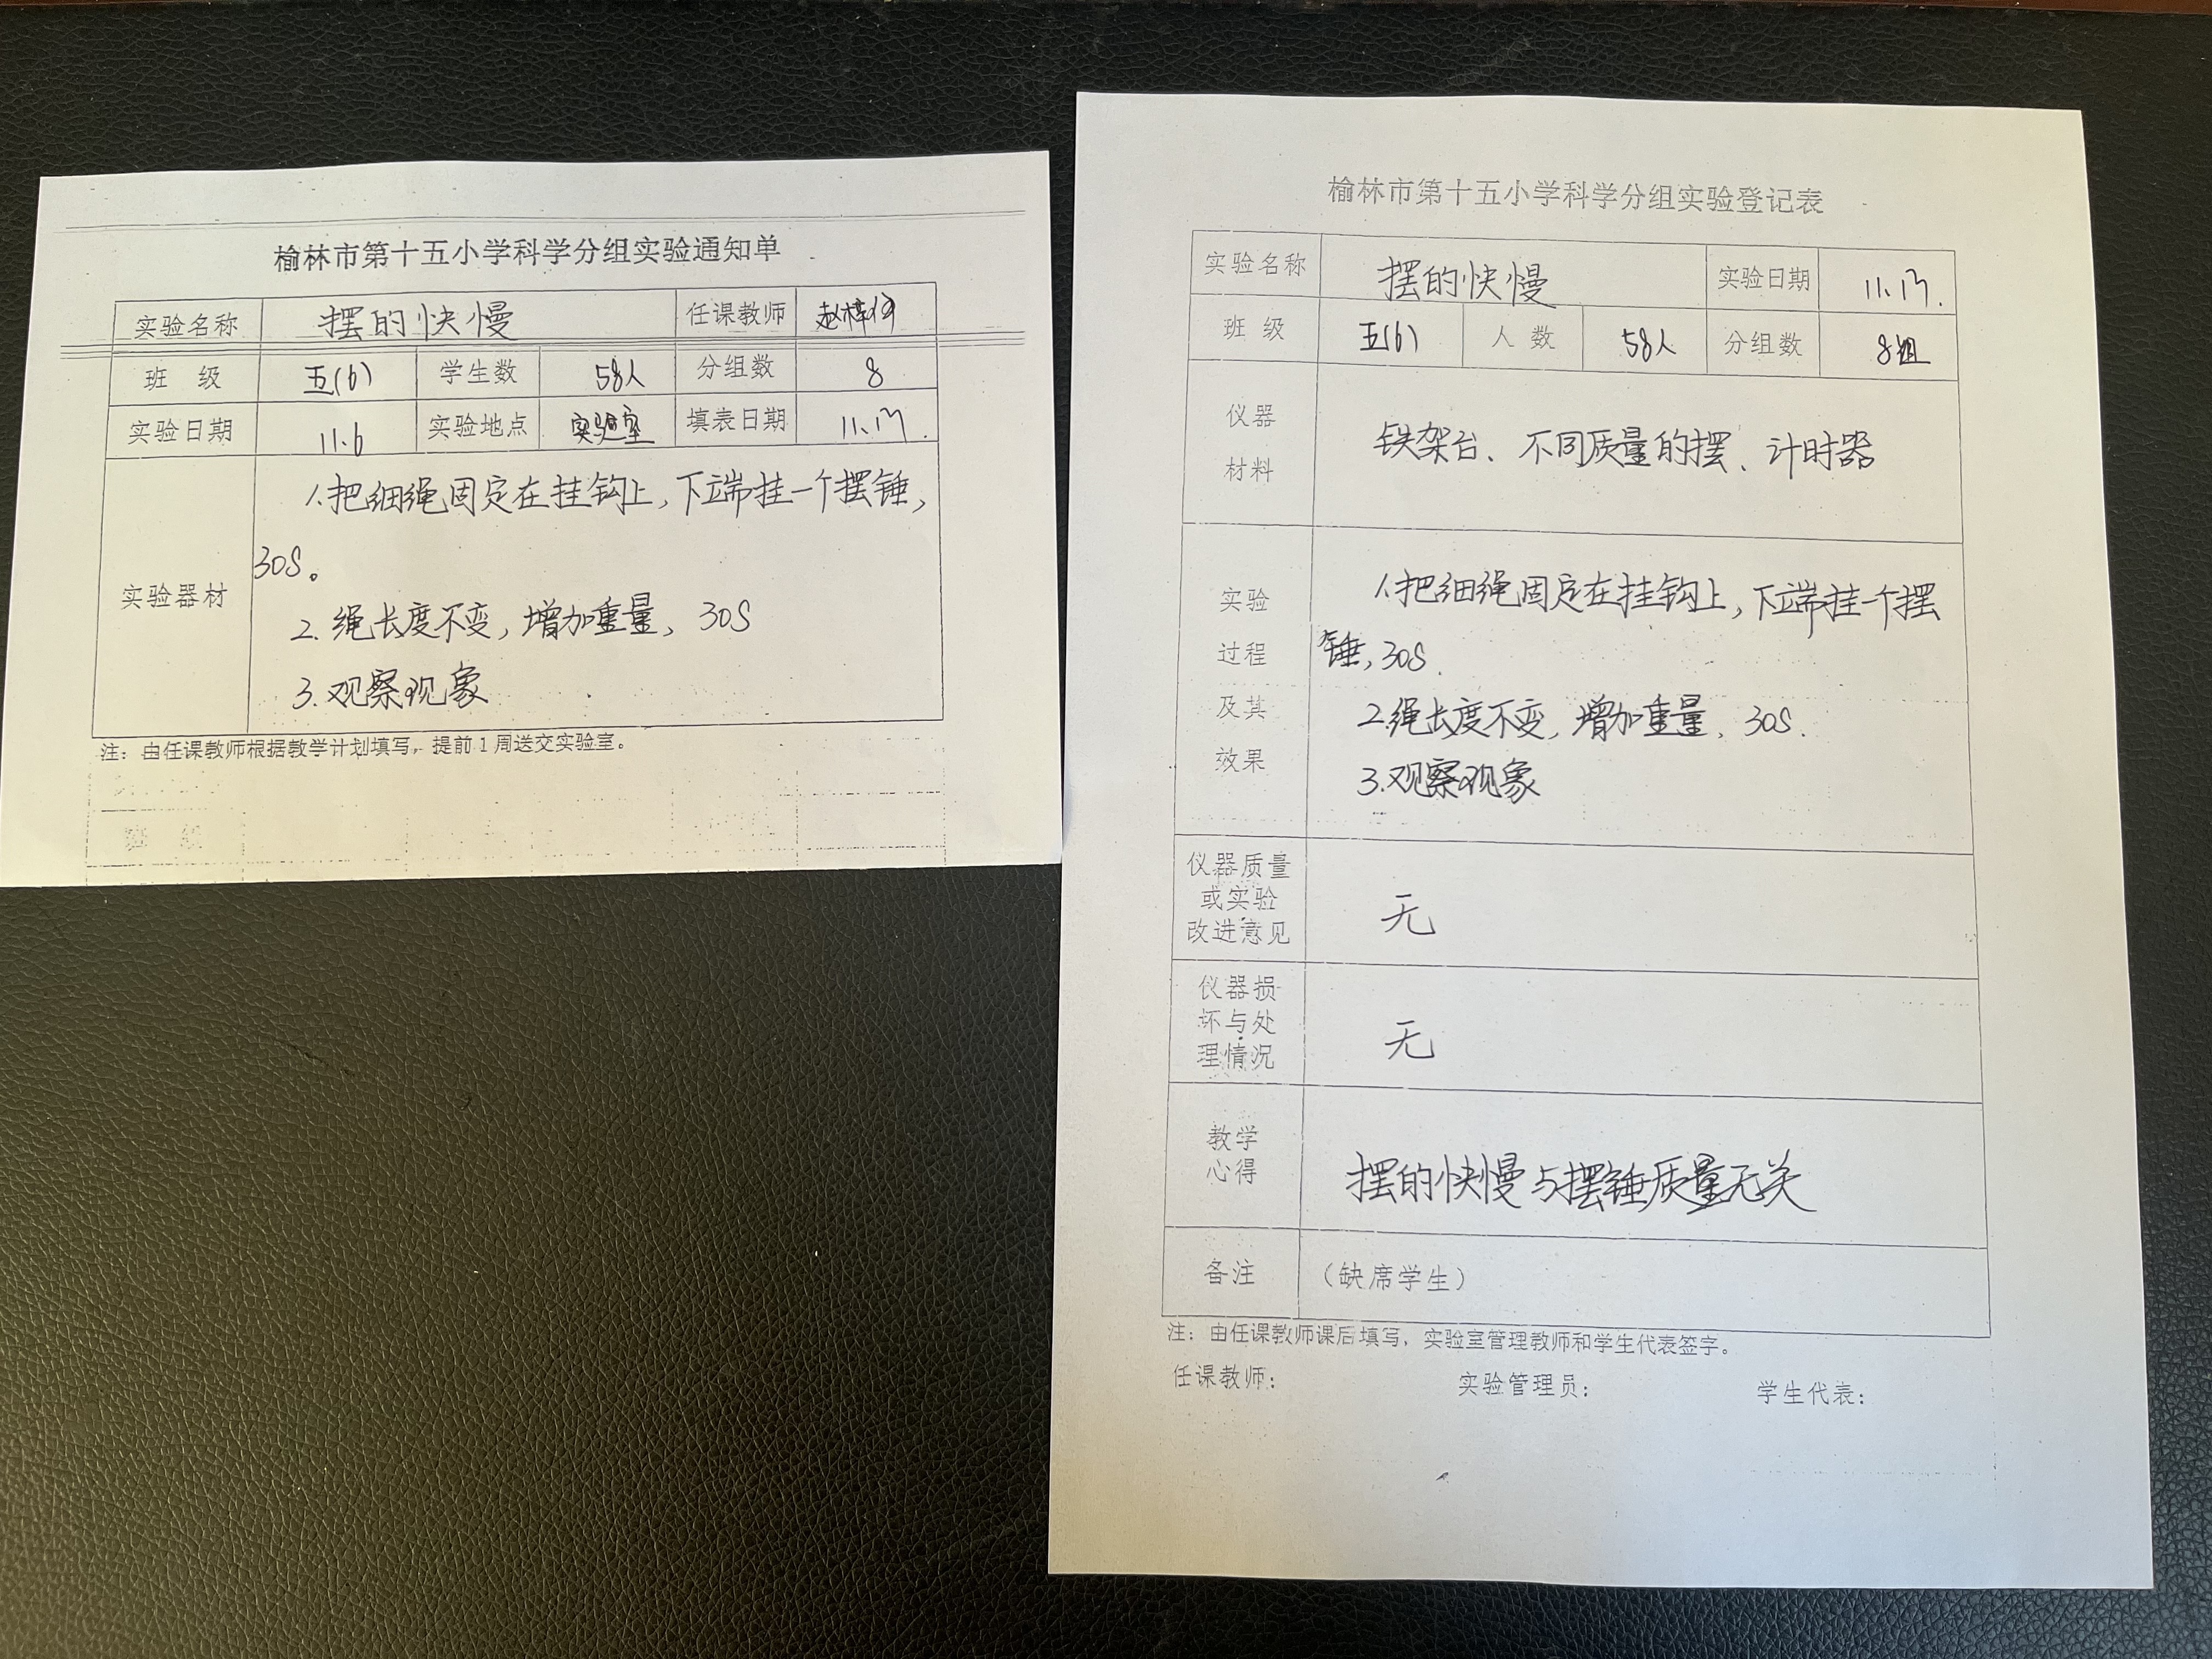 榆林市第十五小学科学分组实验通知单
实验名称 摆的快慢 任课教师
班 级 五(6) 学生数 58人 分组数 8
实验日期 11.6 实验地点 实验室 填表日期 11.13.
实验器材
1.把细绳固定在挂钩上,下端挂一个摆锤,
30S。
2.绳长度不变,增加重量,30S
3.观察现象
注：由任课教师根据教学计划填写，提前1周送交实验室。
班 级
榆林市第十五小学科学分组实验登记表
实验名称 摆的快慢 实验日期 11.13.
班 级 五(6) 人 数 58人 分组数 8组
仪器
材料
铁架台、不同质量的摆、计时器
实验
过程
及其
效果
1.把细绳固定在挂钩上,下端挂一个摆
锤,30S.
2.绳长度不变,增加重量,30S.
3.观察现象
仪器质量
或实验
改进意见
无
仪器损
坏与处
理情况
无
教学
心得
摆的快慢与摆锤质量无关
备注 （缺席学生）
注：由任课教师课后填写，实验室管理教师和学生代表签字。
任课教师： 实验管理员： 学生代表：